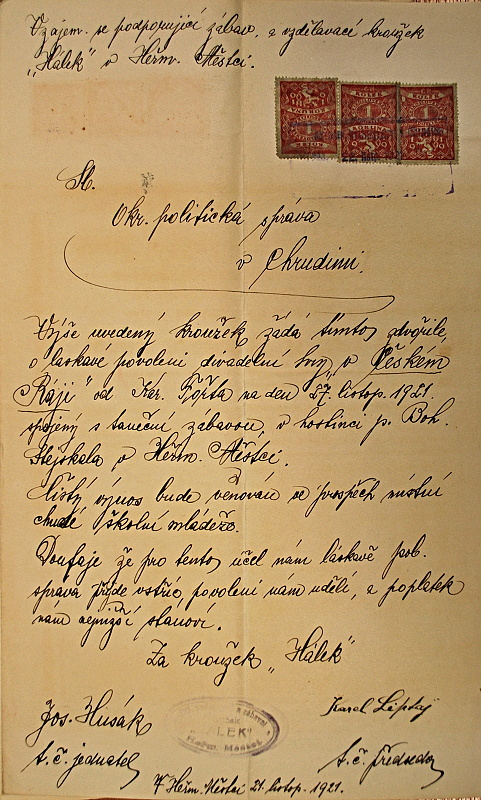 Vzájem. se podporující zábav. a vzdělavací kroužek
„Hálek" v Heřm. Městci.
KOLEK
KOLEK
1
1
1
KORUNA
Sl.
Okr. politická správa
v Chrudimi.
Výše uvedený kroužek žádá tímto zdvořile,
o laskavé povolení divadelní hry „v Českém
Ráji" od Kar. Fořta na den 27. listop. 1921.
spojený s taneční zábavou, v hostinci p. Boh.
Stejskala v Heřm. Městci.
Čistý výnos bude věnován ve prospěch místní
chudé školní mládeže.
Doufaje že pro tento účel nám láskavě pol.
správa přijde vstříc, povolení nám udělí, a poplatek
nám nejnižší stanoví.
Za kroužek „Hálek"
Jos. Husák
Karel Liptaj
"LEK"
Heřm. Městec
t. č. jednatel
t. č. předseda
V Heřm. Městci 21. listop. 1921.